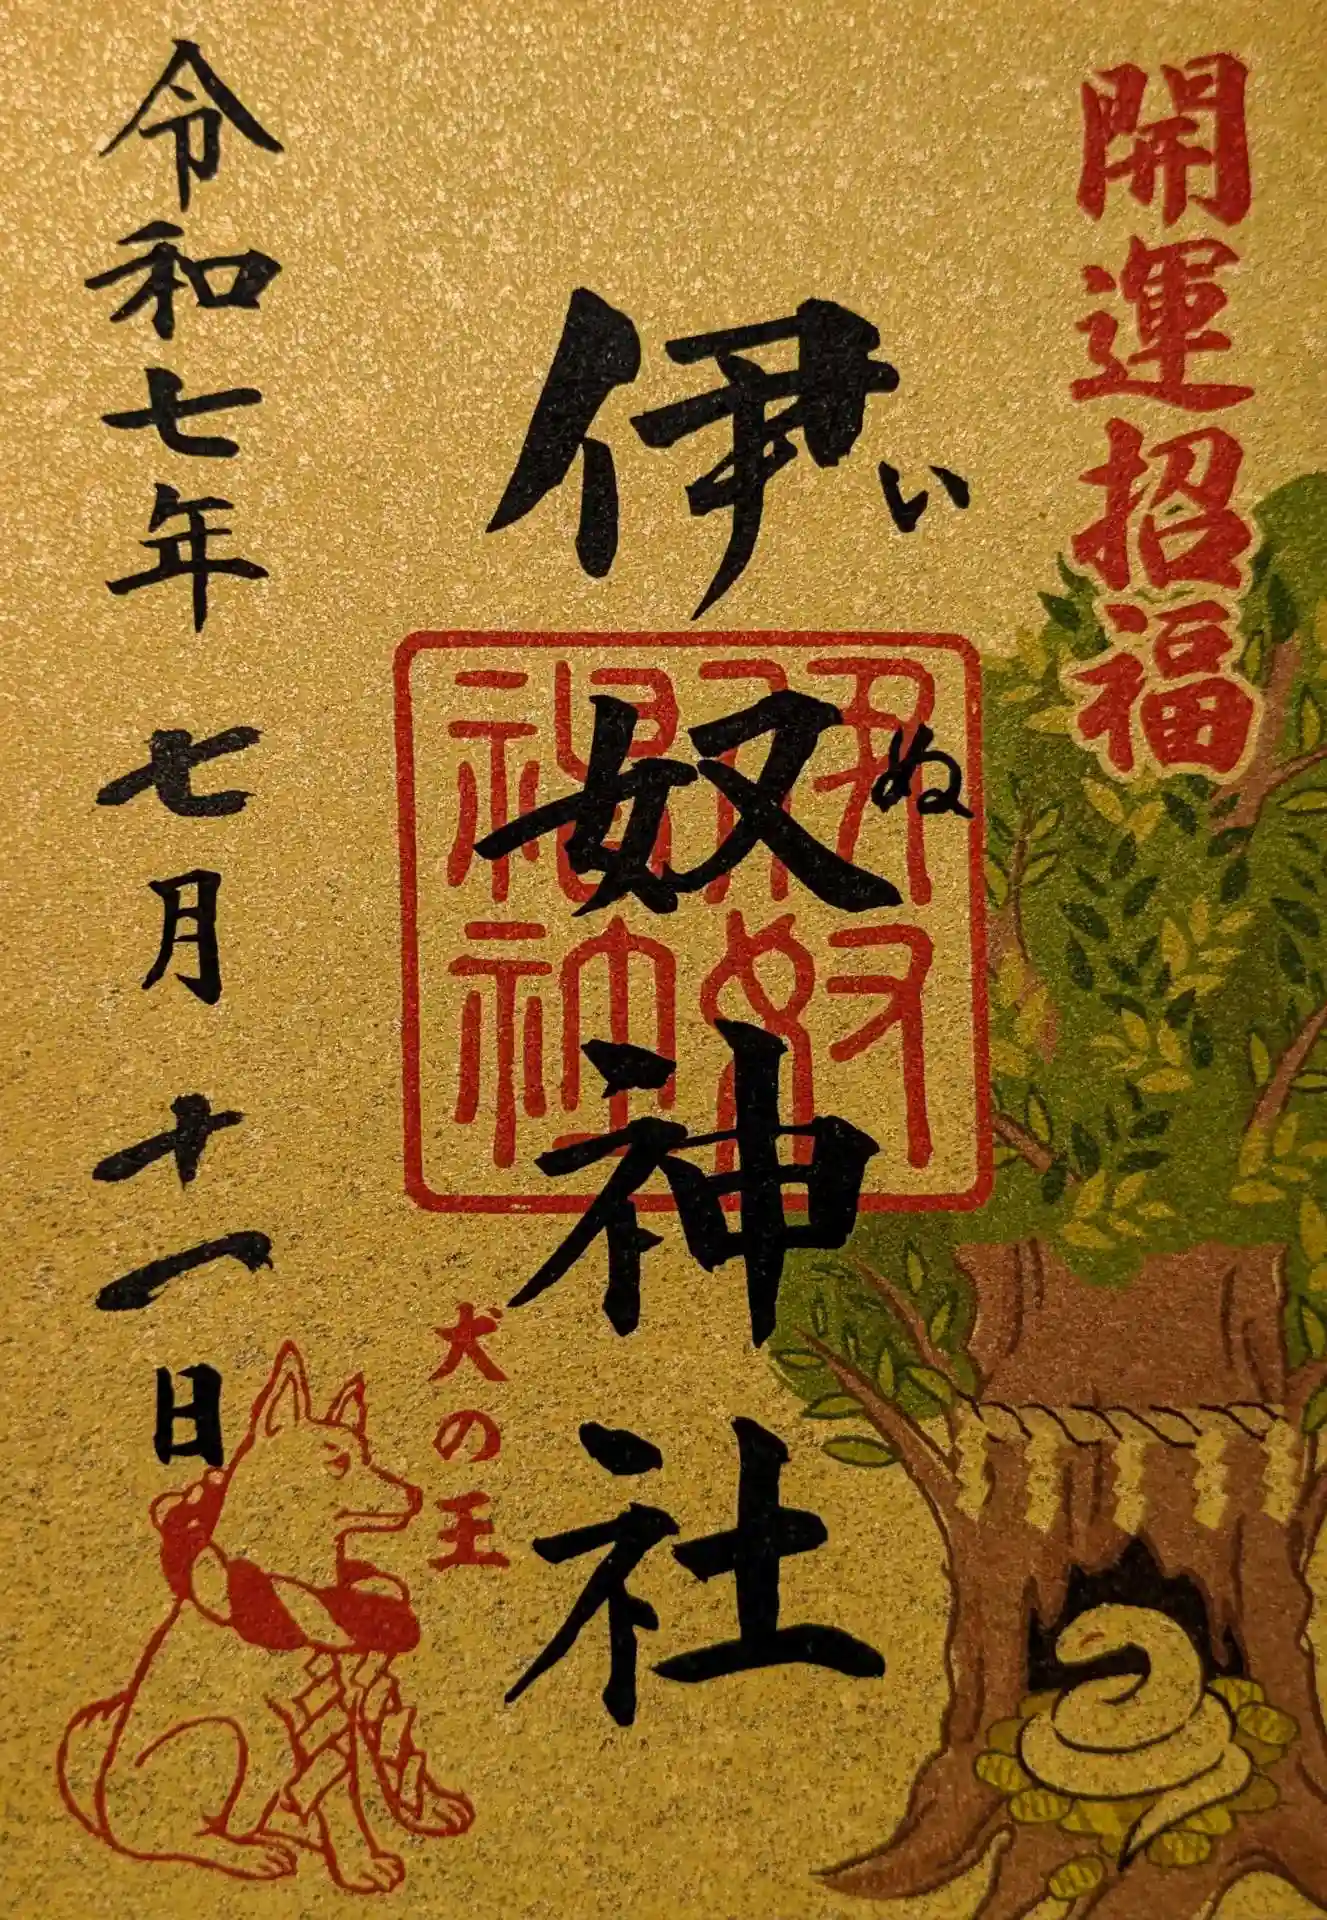 開運招福
伊奴神社
いぬ
犬の王
令和七年七月十一日